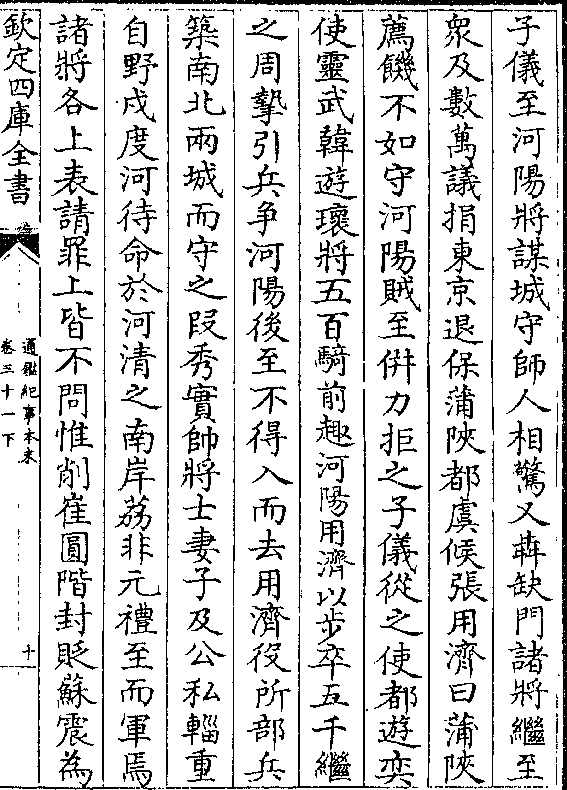 子儀至河陽將謀城守師人相驚又犇缺門諸將繼至
衆及數萬議捐東京退保蒲陜都虞候張用濟曰蒲陜
薦饑不如守河陽賊至併力拒之子儀從之使都遊奕
使靈武韓遊瓌將五百騎前趣河陽用濟以步卒五千繼
之周摯引兵争河陽後至不得入而去用濟役所部兵
築南北兩城而守之段秀實帥將士妻子及公私輜重
自野戍度河待命於河清之南岸荔非元禮至而軍焉
諸將各上表請罪上皆不問惟削崔圓階封貶蘇震為
欽定四庫全書
通鑑紀事本末
卷三十一下
十